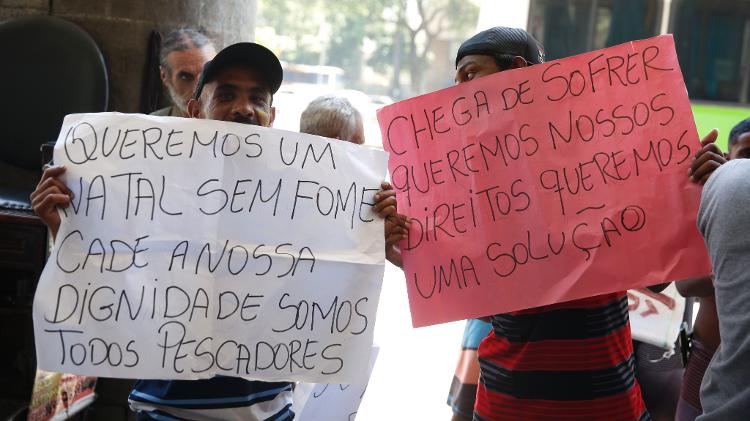 QUEREMOS UM
NATAL SEM FOME
CADE A NOSSA
DIGNIDADE SOMOS
TODOS PESCADORES
CHEGA DE SOFRER
QUEREMOS NOSSOS
DIREITOS QUEREMOS
UMA SOLUÇÃO